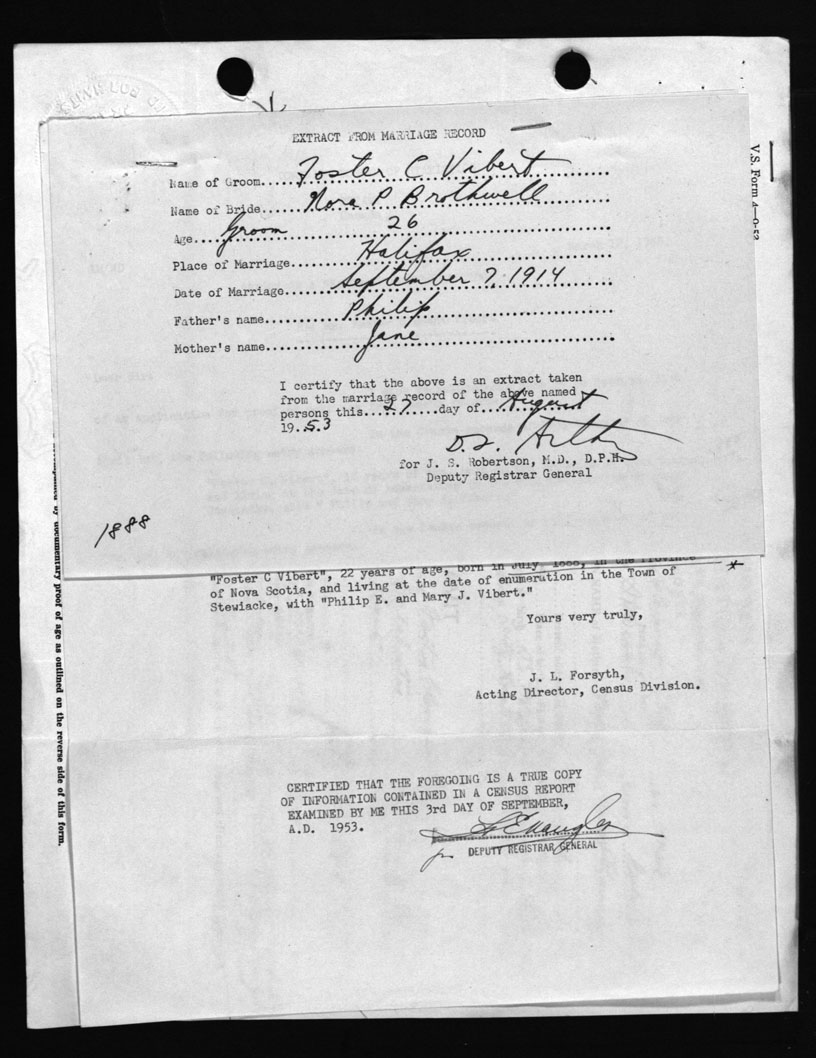 EXTRACT FROM MARRIAGE RECORD
Name of Groom....Foster C Vibert
Name of Bride....Nora P Brothwell
Age....Groom 26
Place of Marriage....Halifax
Date of Marriage....September 7, 1914
Father's name....Philip
Mother's name....Jane
I certify that the above is an extract taken
from the marriage record of the above named
persons this....27....day of....August
19..53
for J. S. Robertson, M.D., D.P.H.
Deputy Registrar General
1888
V.S. Form 4—9-52
by documentary proof of age as outlined on the reverse side of this form.
"Foster C Vibert", 22 years of age, born in July, 1888, in the Province
of Nova Scotia, and living at the date of enumeration in the Town of
Stewiacke, with "Philip E. and Mary J. Vibert."
Yours very truly,
J. L. Forsyth,
Acting Director, Census Division.
CERTIFIED THAT THE FOREGOING IS A TRUE COPY
OF INFORMATION CONTAINED IN A CENSUS REPORT
EXAMINED BY ME THIS 3rd DAY OF SEPTEMBER,
A.D. 1953.
for DEPUTY REGISTRAR GENERAL